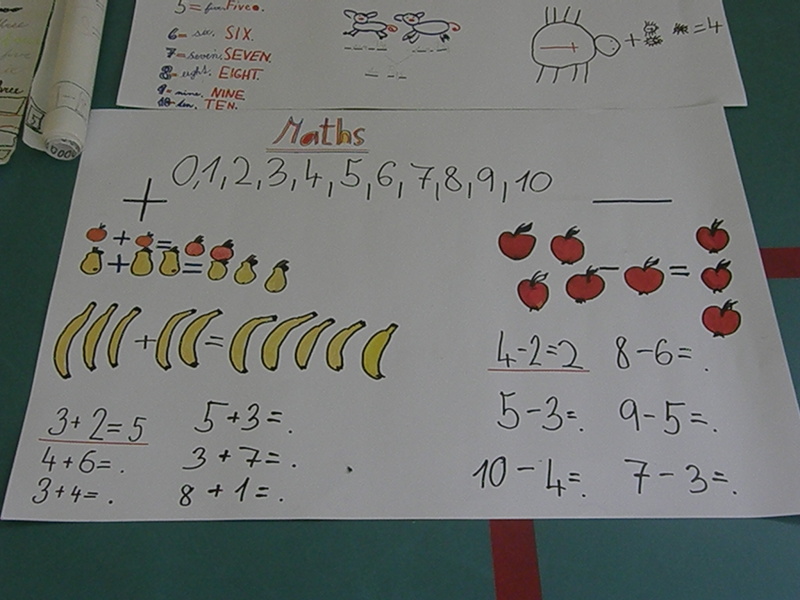 5 = five. FIVE.
6 = six. SIX.
7 = seven. SEVEN.
8 = eight. EIGHT.
9 = nine. NINE
10 = ten. TEN.
+ = 4
Maths
0,1,2,3,4,5,6,7,8,9,10
+ —
+ =
+ =
+ =
- =
3+2=5
4+6=.
3+4=.
5+3=.
3+7=.
8+1=.
4-2=2
5-3=.
10-4=.
8-6=.
9-5=.
7-3=.